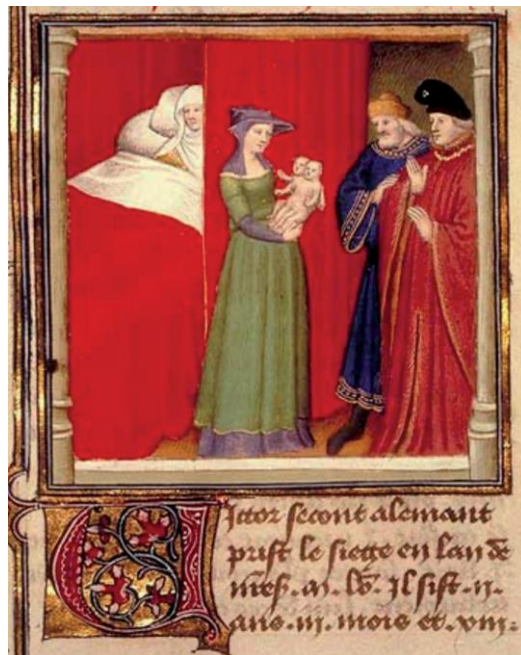 Victor secont alemant
prist le siege en lan de
.m. lv. Il sist .ii.
ans .iii. mois et